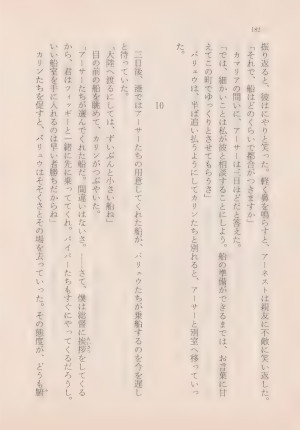 192
振り返ると、彼はにやりと笑った。軽く鼻を鳴らすと、アーネストは親友に不敵に笑い返した。
「それで、船はどのくらいで都合がつきますか」
カマリアの問いに、アーサーは三日ほどだと答えた。
「では、細かいことは私が彼と相談することにしよう。船の準備ができるまでは、お言葉に甘
えてこの町でゆっくりとさせてもらうさ」
バリュウは、半ば追い払うようにしてカリンたちと別れると、アーサーと別室へ移っていっ
た。
10
三日後、港ではアーサーたちの用意してくれた船が、バリュウたちが乗船するのを今を遅し
と待っていた。
「大陸へ渡るにしては、ずいぶんと小さい船ね」
目の前の船を眺めて、カリンがつぶやいた。
「アーサーたちが選んでくれた船だ。間違いはないさ。――さて、僕は総督に挨拶をしてくる
から、君はフィッギーと一緒に先に乗っててくれ。バイパーたちもすぐにやってくるだろうし。
いい船室を手に入れるのは早い者勝ちだからね」
カリンたちを促すと、バリュウはそそくさとその場を去っていった。その態度が、どうも腑